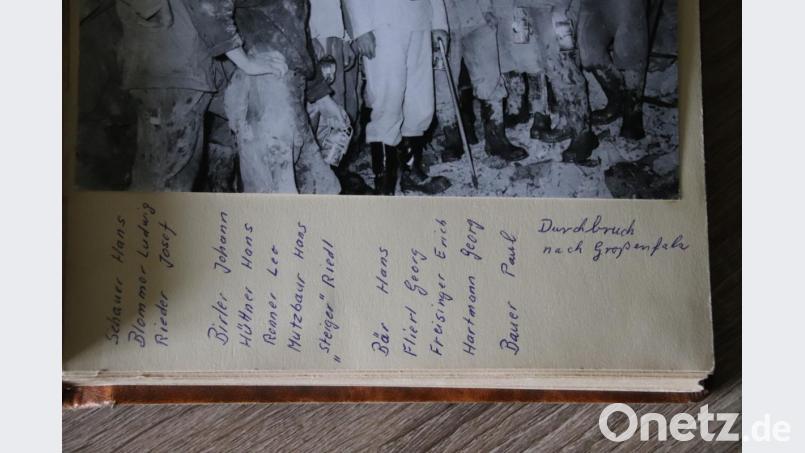 Schauer Hans
Blommer Ludwig
Rieder Josef
Birler Johann
Hüttner Hans
Renner Leo
Mutzbaur Hans
„Steiger" Riedl
Bär Hans
Flierl Georg
Freisinger Erich
Hartmann Georg
Bauer Paul
Durchbruch
nach Großenfalz
Onetz.de